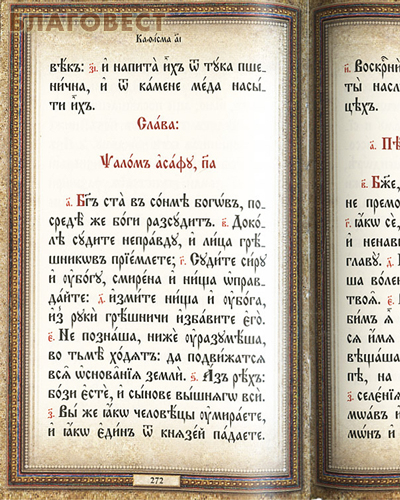 БЛАГОВЕСТ
Каѳі́сма а҃і
вѣ́къ: з҃і. и҆ напита̀ и҆̀хъ ѿ тꙋ́ка пше-
ни́чна, и҆ ѿ ка́мене ме́да насы́-
ти и҆̀хъ.
Сла́ва:
Ѱало́мъ а҆са́фꙋ, п҃а
а҃. Бг҃ъ ста̀ въ со́нмѣ богѡ́въ, по-
средѣ́ же бо́ги разсꙋ́дитъ. в҃. Доко́-
лѣ сꙋ́дите непра́вдꙋ, и҆ ли́ца грѣ́-
шникѡвъ прїе́млете; г҃. Сꙋди́те си́рꙋ
и҆ ᲂу҆бо́гꙋ, смире́на и҆ ни́ща ѡ҆прав-
да́йте: д҃. и҆зми́те ни́ща и҆ ᲂу҆бо́га,
и҆з̾ рꙋкѝ грѣ́шничи и҆зба́вите є҆го̀.
є҃. Не позна́ша, нижѐ ᲂу҆разꙋмѣ́ша,
во тьмѣ̀ хо́дѧтъ: да подви́жатсѧ
всѧ̑ ѡ҆снова̑нїѧ землѝ. ѕ҃. А҆́зъ рѣ́хъ:
бо́зи є҆стѐ, и҆ сы́нове вы́шнѧгѡ всѝ.
з҃. Вы́ же ꙗ҆́кѡ человѣ́цы ᲂу҆мира́ете,
и҆ ꙗ҆́кѡ є҆ди́нъ ѿ кнѧзе́й па́даете.
272
и҃. Воскрⷭ҇нѝ
ты̀ насл
цѣхъ.
а҃. Пѣ
в҃. Бж҃е,
не премо
г҃. ꙗ҆́кѡ сѐ,
и҆ ненави
главꙋ̀. д҃.
ша̀ волен
твоѧ̑. є҃.
би́мъ ѧ҆̀
сѧ и҆́мѧ
вѣща́ша
пѣ, на
з҃. селє́нїѧ
мѡа́въ и҆
мѡ́нъ и҆